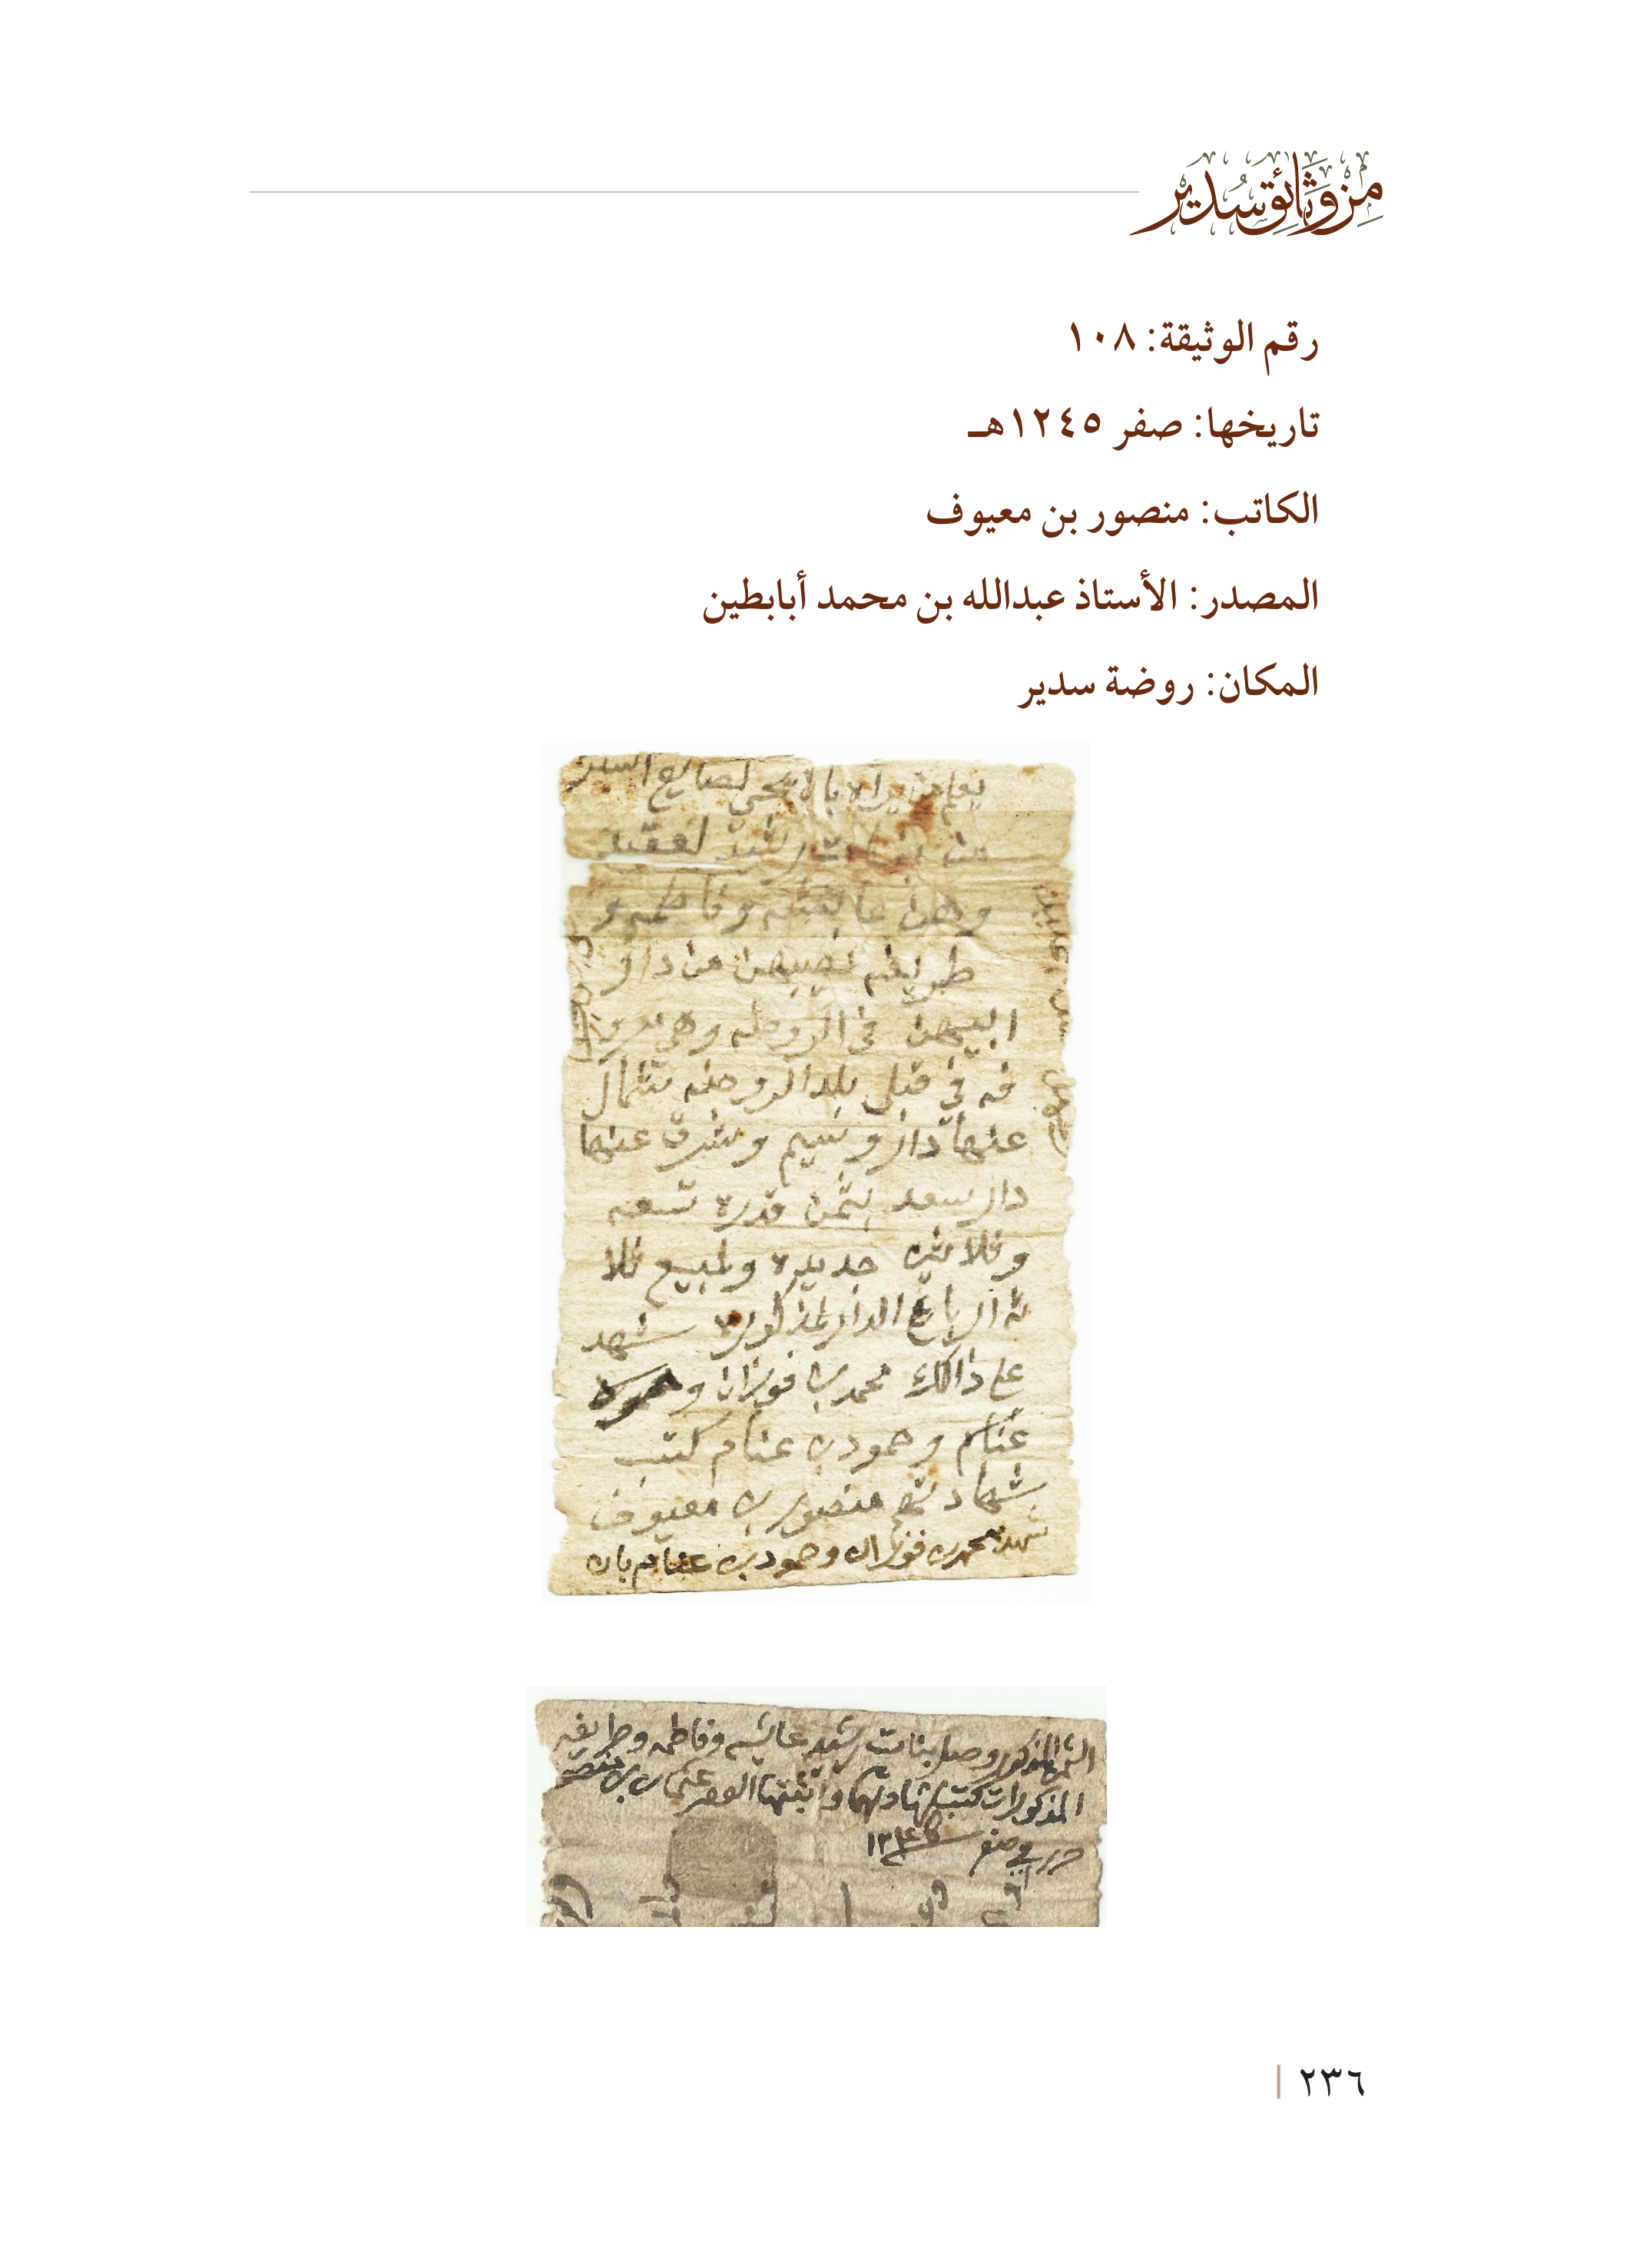 من وثائق سدير
رقم الوثيقة: ١٠٨
تاريخها: صفر ١٢٤٥هـ
الكاتب: منصور بن معيوف
المصدر: الأستاذ عبدالله بن محمد أبابطين
المكان: روضة سدير
يعلم من يراه بان
من بنات رشيد
وهن عايشه وفاطمه و
طريفه نصيبهن من دار
ابيهن في الروضه وهي معرو
فه في قبلي بلد الروضه شمال
عنها دار وسيم وشرق عنها
دار سعد بثمن قدره تسعه
وثلاثين جديده ولمبيع ثلا
ثه ارباع الدار لمذكوره شهد
على ذالك محمد بن فوزان و
غنام وحمود بن غنام كتب
شهادتهم منصور بن معيوف
شهد محمد بن فوزان وحمود بن غنام بان
الثمن المذكور وصل بنات رشيد عايشه وفاطمه وطريفه
المذكورات كتب شهادتهما واثبتها الفقير عثمان بن منصور
حرر في صفر
٢٣٦